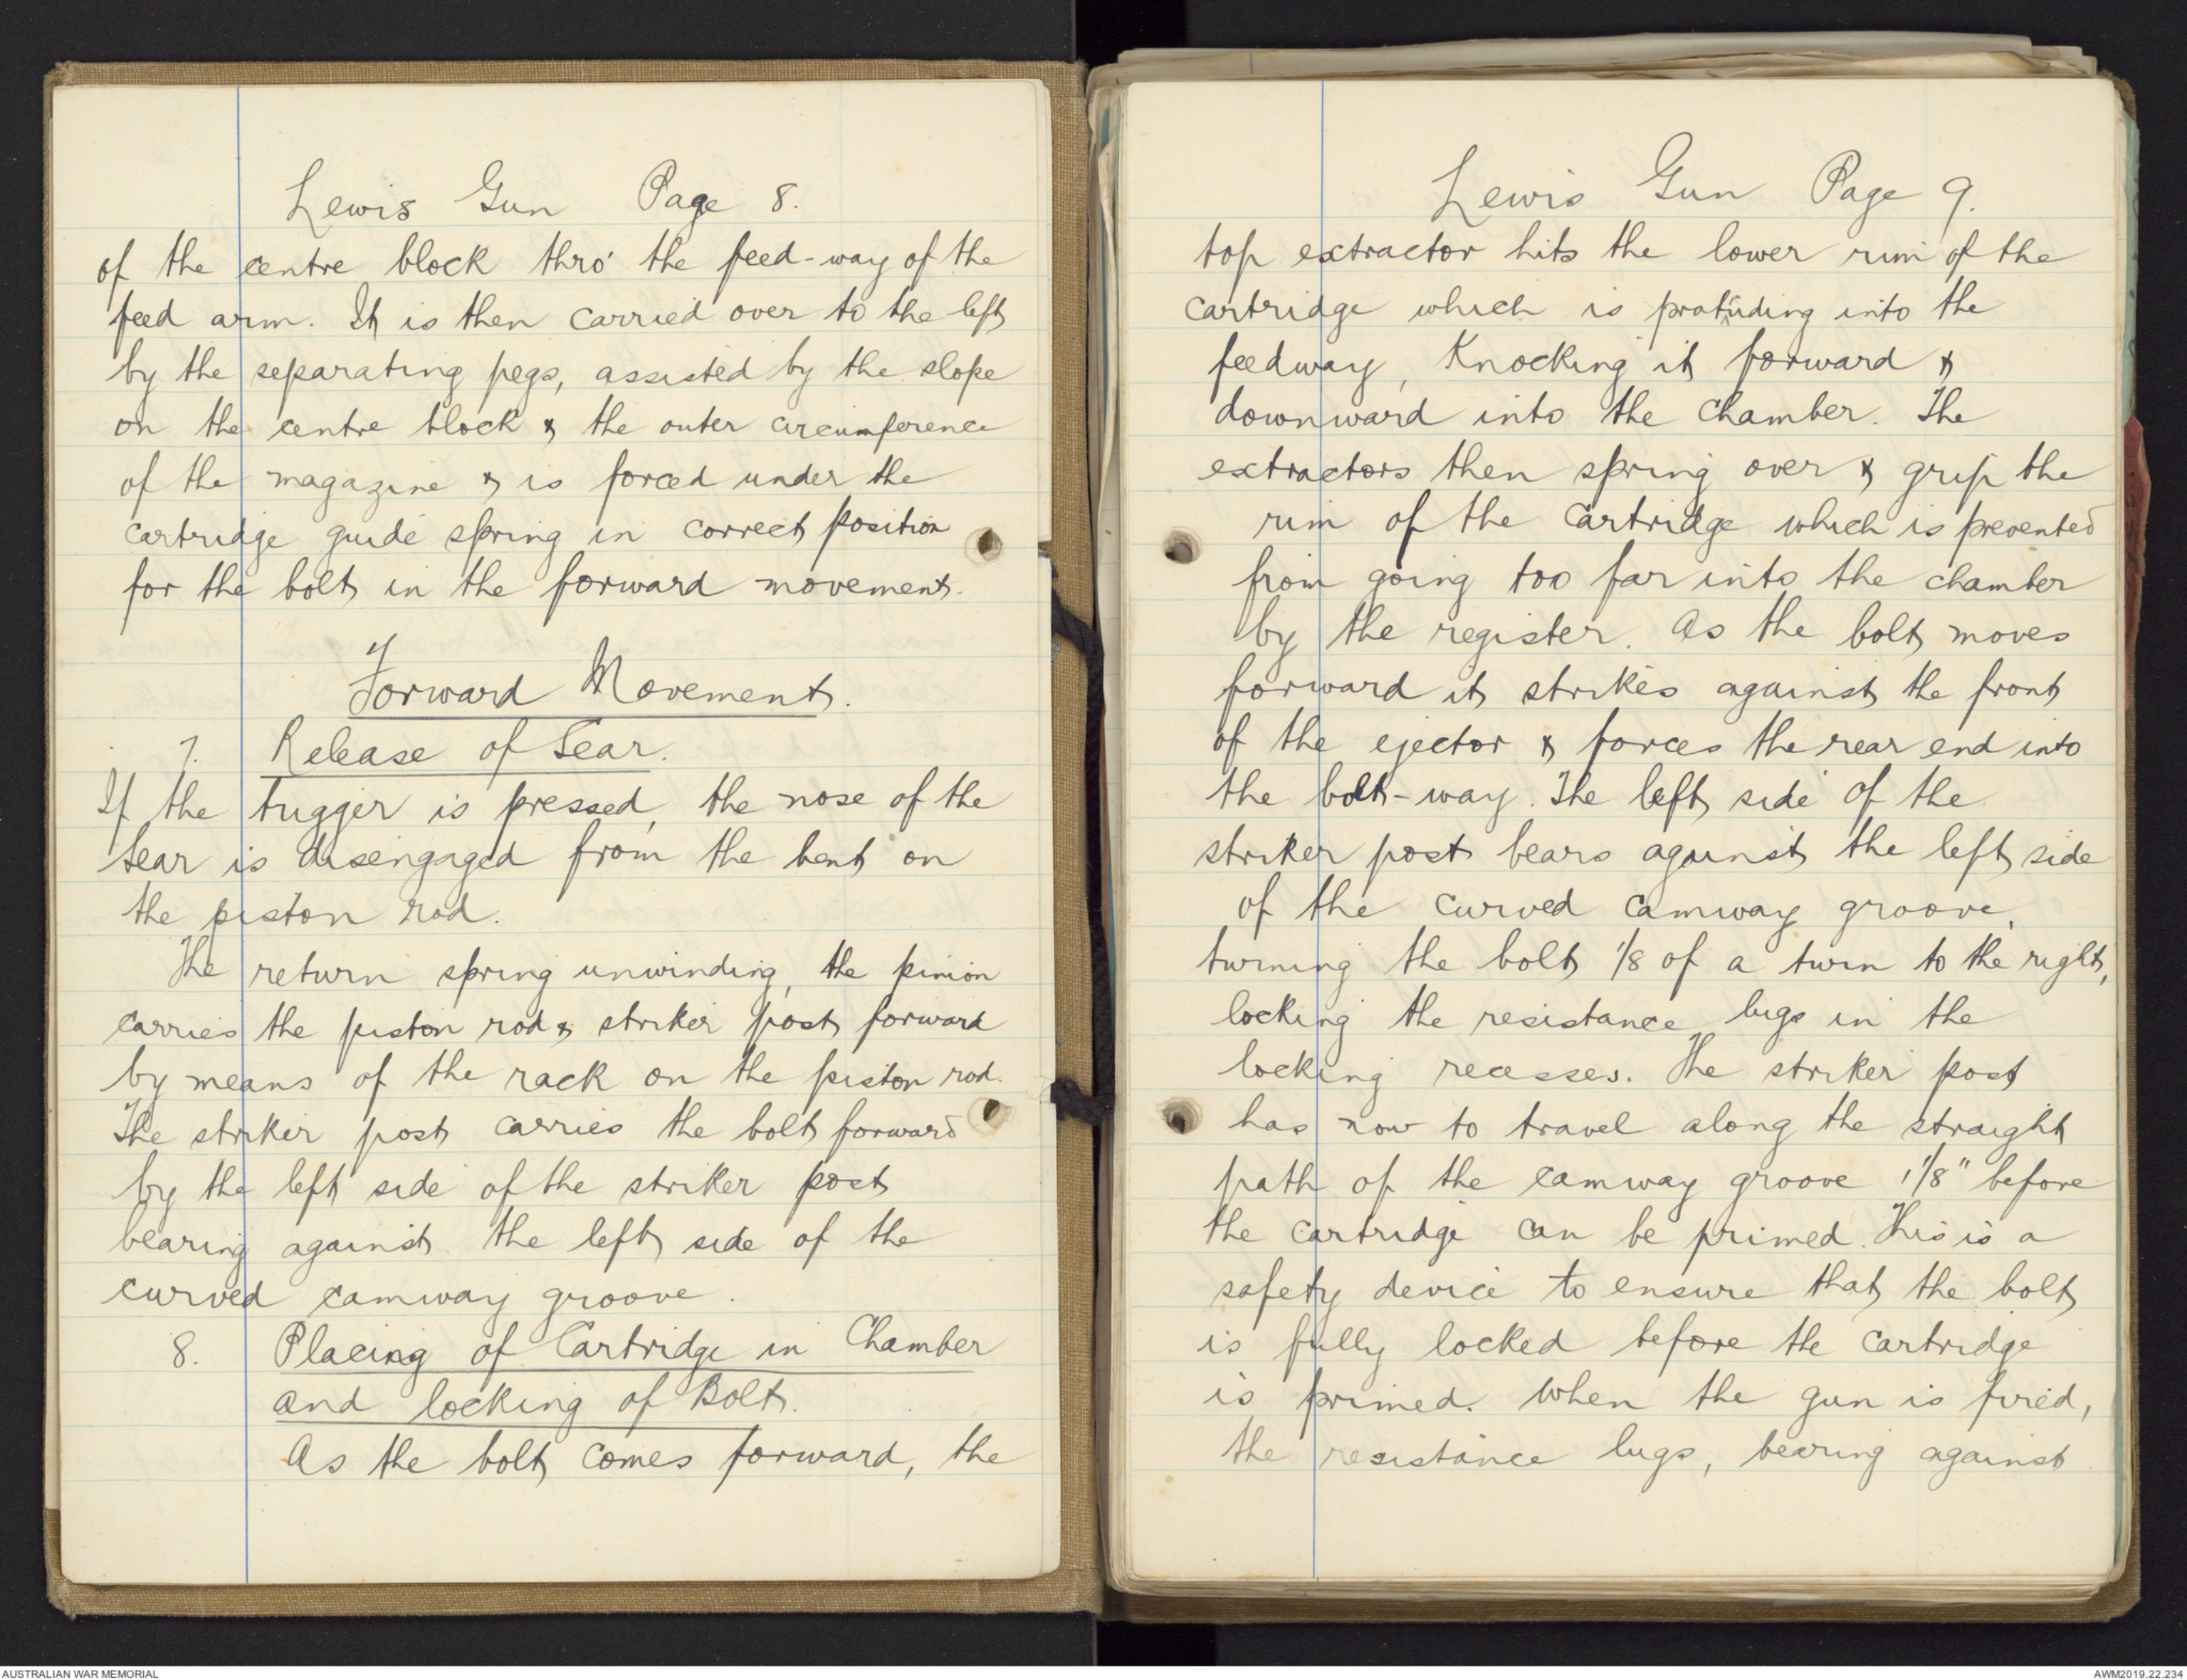 Lewis Gun Page 8.
of the centre block thro' the feed-way of the
feed arm. It is then carried over to the left
by the separating pegs, assisted by the slope
on the centre block & the outer circumference
of the magazine & is forced under the
cartridge guide spring in correct position
for the bolt in the forward movement.
Forward Movement.
7. Release of Sear.
If the trigger is pressed, the nose of the
sear is disengaged from the bent on
the piston rod.
The return spring unwinding, the pinion
carries the piston rod & striker post forward
by means of the rack on the piston rod.
The striker post carries the bolt forward
by the left side of the striker post
bearing against the left side of the
curved camway groove.
8. Placing of Cartridge in Chamber
and locking of Bolt.
As the bolt comes forward, the
Lewis Gun Page 9.
top extractor hits the lower rim of the
cartridge which is protruding into the
feedway, knocking it forward &
downward into the chamber. The
extractors then spring over & grip the
rim of the cartridge which is prevented
from going too far into the chamber
by the register. As the bolt moves
forward it strikes against the front
of the ejector & forces the rear end into
the bolt-way. The left side of the
striker post bears against the left side
of the curved camway groove,
turning the bolt 1/8 of a turn to the right,
locking the resistance lugs in the
locking recesses. The striker post
has now to travel along the straight
path of the camway groove 1 1/8" before
the cartridge can be primed. This is a
safety device to ensure that the bolt
is fully locked before the cartridge
is primed. When the gun is fired,
the resistance lugs, bearing against
AUSTRALIAN WAR MEMORIAL
AWM2019.22.234